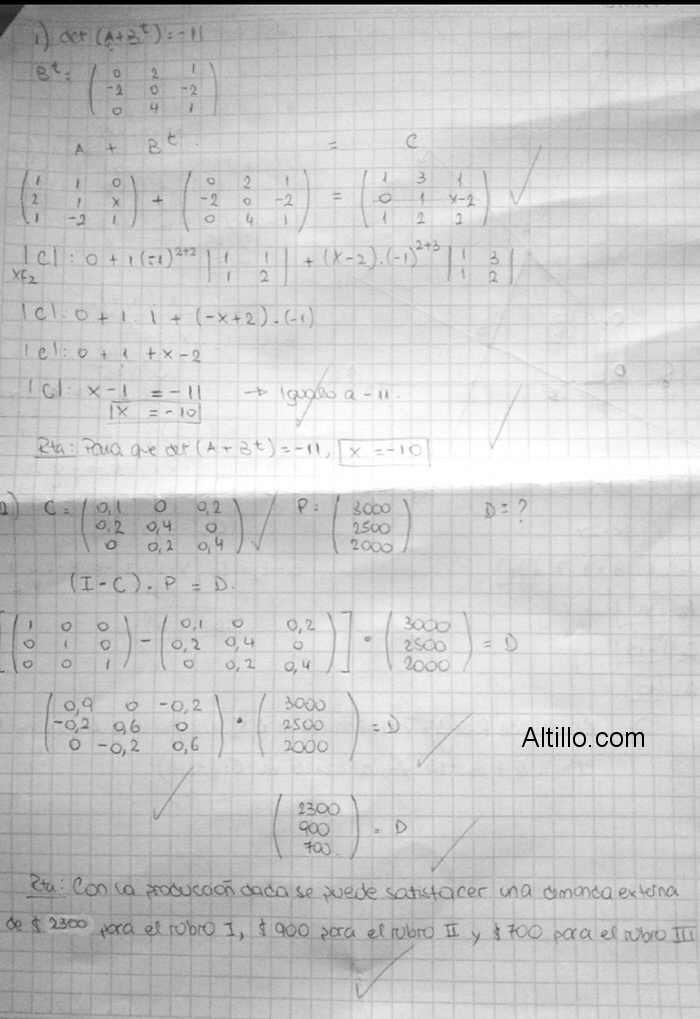 1) det (A+B^t) = -11
B^t: ( 0 2 1
-2 0 -2
0 4 1 )
A + B^t = C
( 1 1 0 ) + ( 0 2 1 ) = ( 1 3 1 )
( 2 1 x ) ( -2 0 -2 ) ( 0 1 x-2 )
( 1 -2 1 ) ( 0 4 1 ) ( 1 2 2 )
|C|: 0 + 1 (-1)^2+2 | 1 1 | + (x-2).(-1)^2+3 | 1 3 |
xF2 | 1 2 | | 1 2 |
|C|: 0 + 1 . 1 + (-x+2) . (-1)
|C|: 0 + 1 + x-2
|C|: x-1 = -11 → Igualo a -11.
x = -10
Rta: Para que det (A+B^t) = -11, x = -10
2) C = ( 0,1 0 0,2 ) P: ( 3000 ) D = ?
( 0,2 0,4 0 ) ( 2500 )
( 0 0,2 0,4 ) ( 2000 )
(I-C) . P = D.
[( 1 0 0 ) - ( 0,1 0 0,2 )] • ( 3000 ) = D
( 0 1 0 ) ( 0,2 0,4 0 ) ( 2500 )
( 0 0 1 ) ( 0 0,2 0,4 ) ( 2000 )
( 0,9 0 -0,2 ) • ( 3000 ) = D
( -0,2 0,6 0 ) ( 2500 )
( 0 -0,2 0,6 ) ( 2000 )
Altillo.com
( 2300 ) = D
( 900 )
( 700 )
Rta: Con la producción dada se puede satisfacer una demanda externa
de $ 2300 para el rubro I, $ 900 para el rubro II y $ 700 para el rubro III